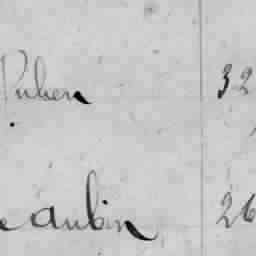 Ruben 32
Aubin 26